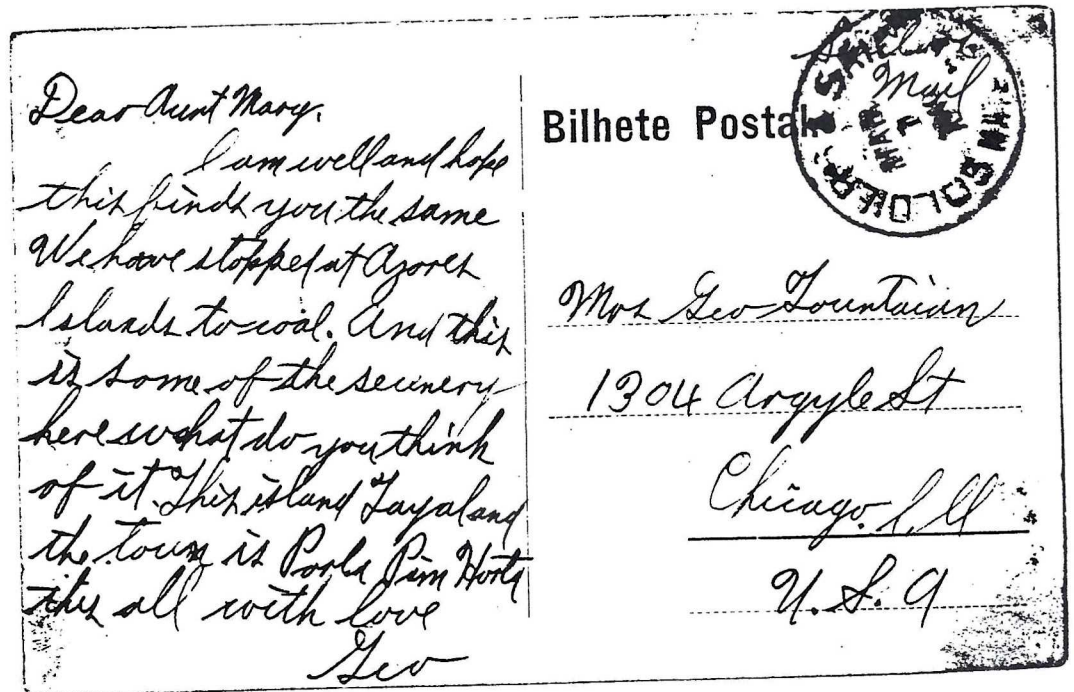 Dear Aunt Mary.
I am well and hope
this finds you the same
We have stopped at Azores
Islands to coal. And this
is some of the seenery
here what do you think
of it. This island Fayal and
the town is Porla Pim Horta
this all with love
Geo
Bilhete Postal
Mail
MAR
Mrs Geo Fountaian
1304 Argyle St
Chicago. Ill
U. S. A